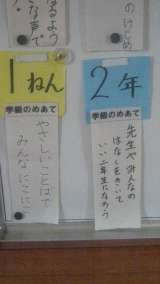 のけじめ
1ねん
学級のめあて
やさしいことばで
みんなにこにこ
2年
学級のめあて
先生やみんなの
はなしをきいて
いい二年生になろう